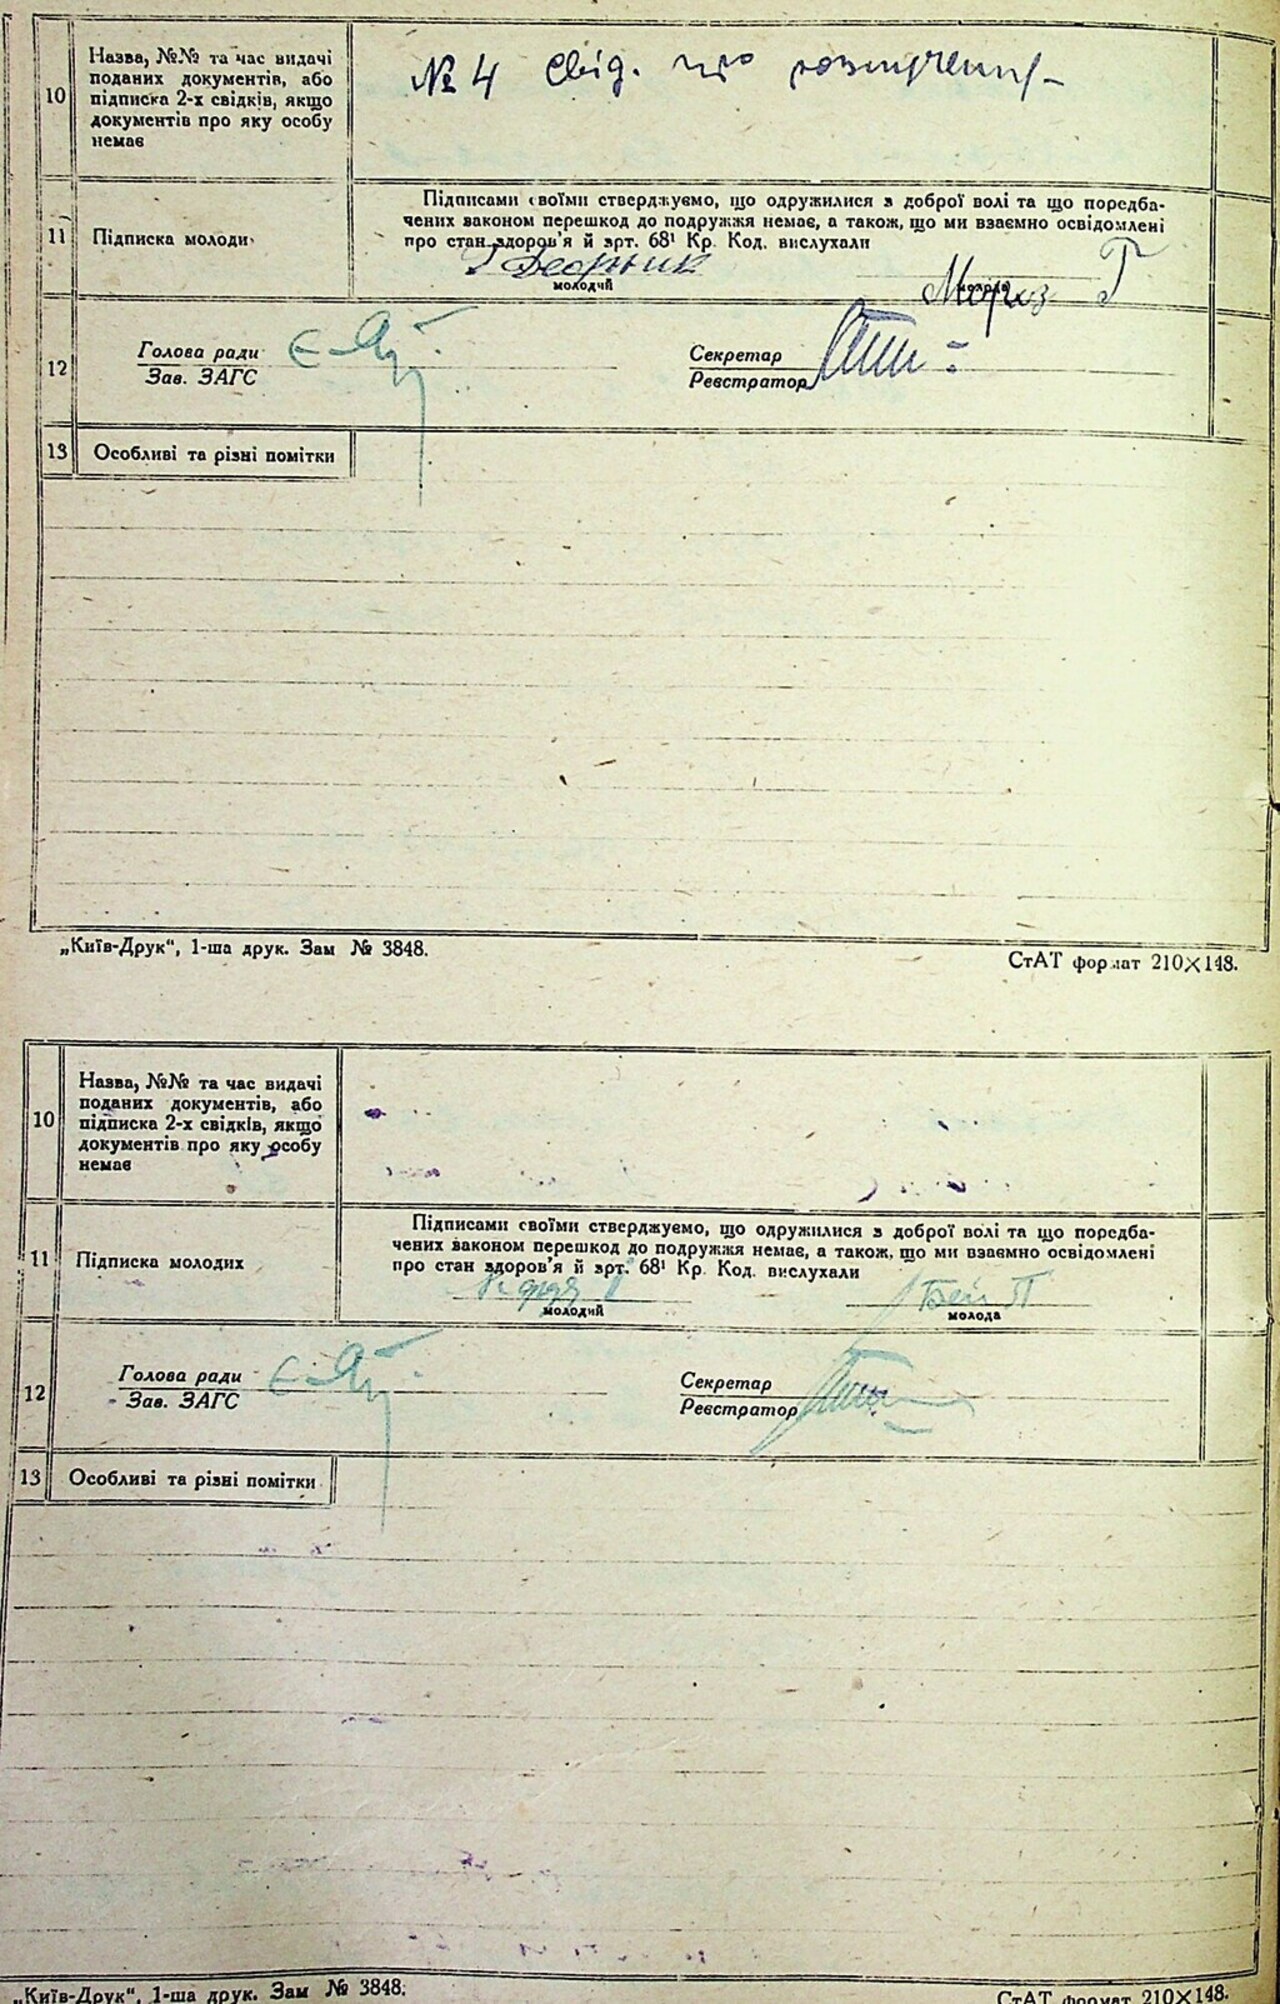 10
Назва, №№ та час видачі
поданих документів, або
підписка 2-х свідків, якщо
документів про яку особу
немає
№ 4 свід. про розлучення
11
Підписка молоди
Підписами своїми стверджуємо, що одружилися з доброї волі та що передба-
чених законом перешкод до подружжя немає, а також, що ми взаємно освідомлені
про стан здоров'я й арт. 68¹ Кр. Код. вислухали
молодий
Мороз Г
молода
12
Голова ради
Зав. ЗАГС
Секретар
Реєстратор
13
Особливі та різні помітки
„Київ-Друк“, 1-ша друк. Зам № 3848.
СтАТ формат 210×148.
10
Назва, №№ та час видачі
поданих документів, або
підписка 2-х свідків, якщо
документів про яку особу
немає
11
Підписка молодих
Підписами своїми стверджуємо, що одружилися з доброї волі та що передба-
чених законом перешкод до подружжя немає, а також, що ми взаємно освідомлені
про стан здоров'я й арт. 68¹ Кр. Код. вислухали
молодий
молода
12
Голова ради
Зав. ЗАГС
Секретар
Реєстратор
13
Особливі та різні помітки
„Київ-Друк“, 1-ша друк. Зам № 3848.
СтАТ формат 210×148.